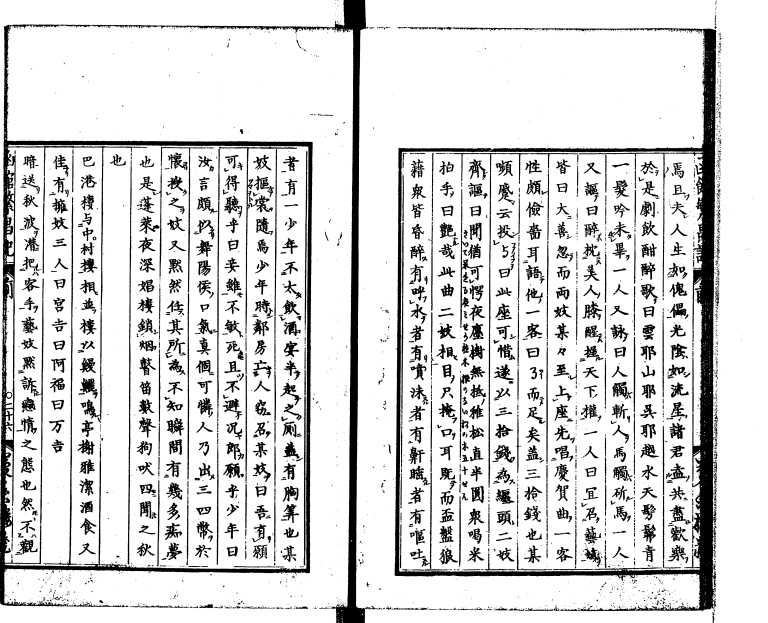 焉且夫人生如傀儡光陰如流星諸君盍共盡歡樂
於是劇飲酣醉歌曰雲耶山耶吳耶越水天髣髴青
一髮吟未畢一人又詠曰人觸斬人馬觸斫馬一人
又謳曰醉枕美人膝醒握天下權一人曰宜召藝妓
皆曰大善忽而兩妓某々至上座先唱慶賀曲一客
性頗儉嗇耳語他一客曰了而足矣蓋三拾錢也某
嚬蹙云投与曰此座可惜遂以三拾錢為纏頭二妓
齊謳曰聞猶可愕夜塵樹無抵稚松直半圓衆喝米
拍手曰艷哉此曲二妓相目只掩口耳既而盃盤狼
藉衆皆昏醉有呼水者有噴沫者有鼾睡者有嘔吐
者有一少年不太飲酒宴半起之厠蓋有胸算也某
妓摳裳隨焉少年時鄰房亡人窃召某妓曰吾有願
可得聽乎曰妾雖不敏死且不避況郎願乎少年曰
汝言頗似舞陽侯口氣真個可憐人乃出三四幣於
懷投之妓又默然任其所為不知瞬間有幾多痴夢
也是蓬萊夜深娼樓鎖烟聲笛數聲狗吠四聞之秋
也
巴港樓与中村樓相並樓以鰻鱺鳴亭榭雅潔酒食又
佳有擁妓三人曰宮吉曰阿福曰万吉
暗送秋波港把客手藝妓默訴戀情之態也然不觀